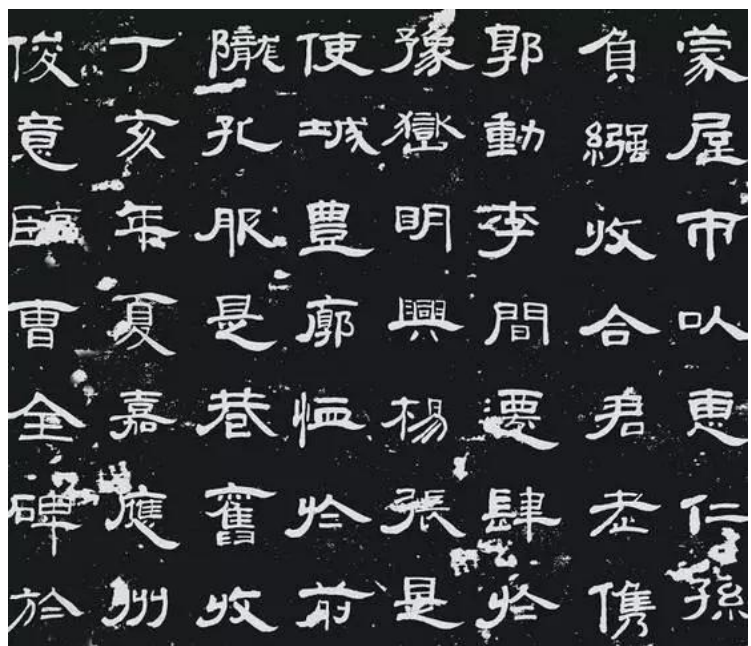 蒙屋市以惠仁孫
負繈收合君老儁
郭動李間遷肆於
豫嶽明興楊張是
使城豊廓恤於前
隴孔服是巷舊收
丁亥年夏嘉應州
俊意臨曹全碑於